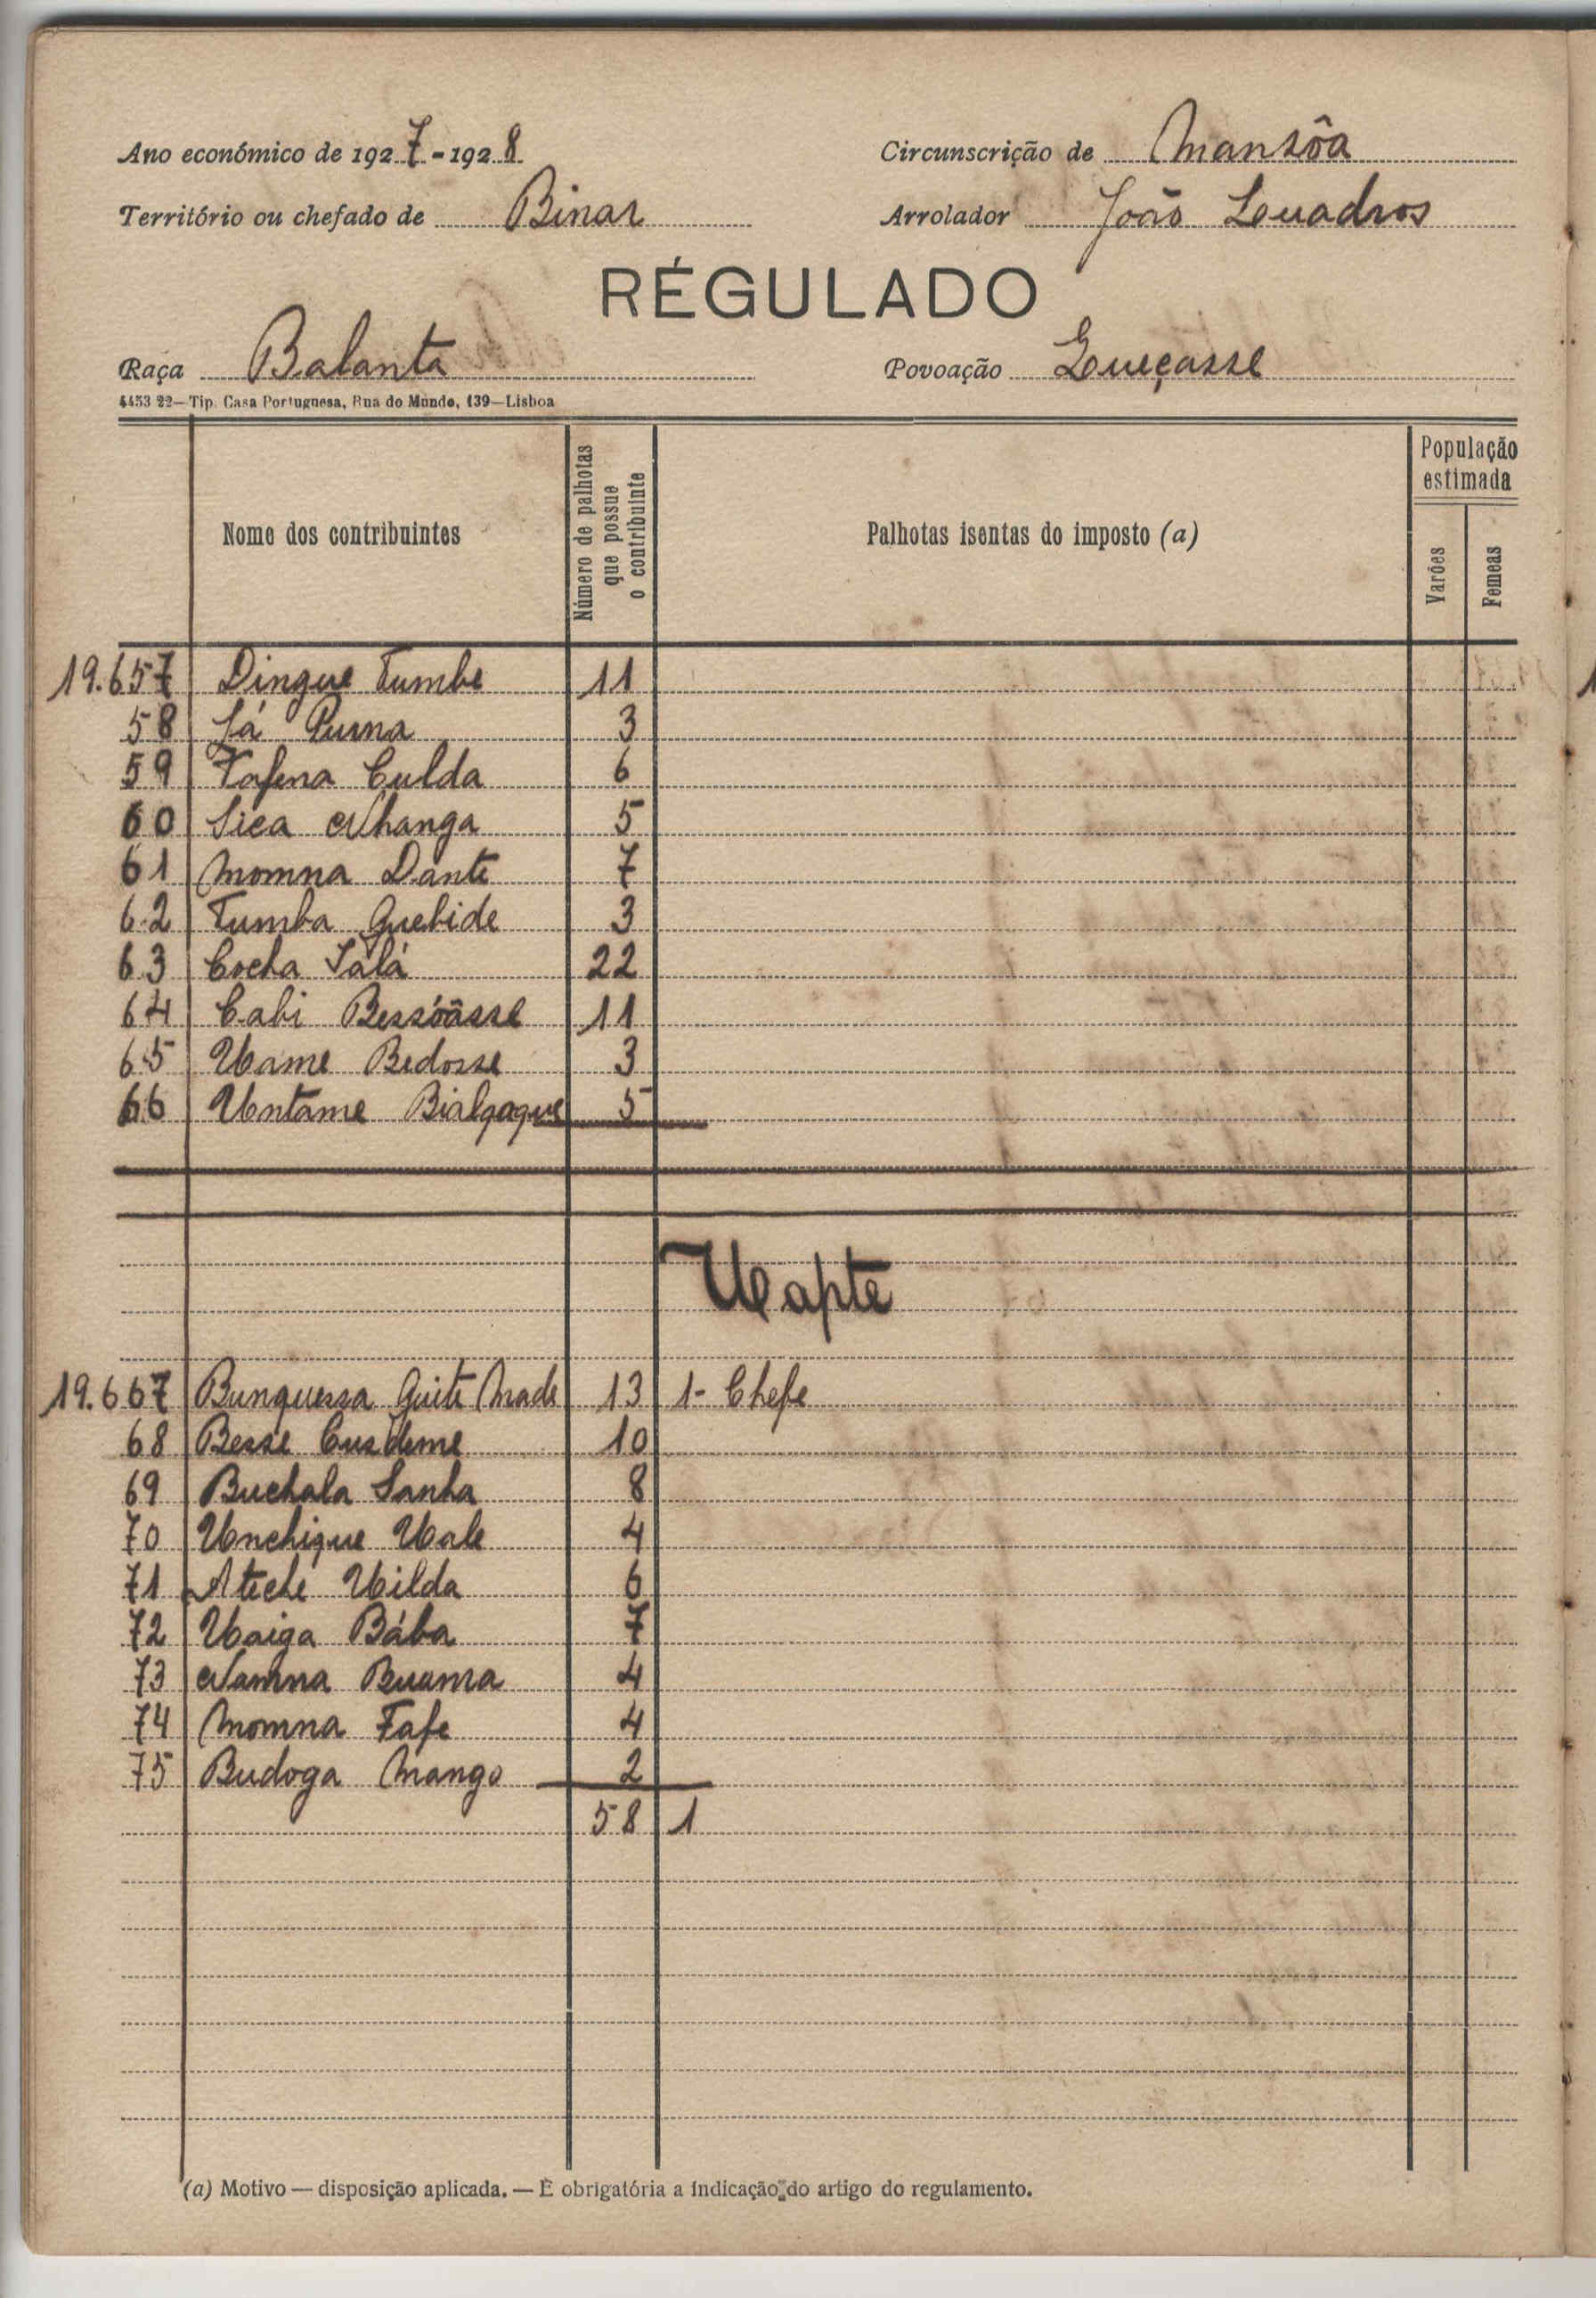 Ano económico de 1927-1928
Circunscrição de Mansôa
Território ou chefado de Binar
Arrolador João
RÉGULADO
Raça Balanta
Povoação
4453 22—Tip. Casa Portuguesa, Rua do Mundo, 139—Lisboa
Nome dos contribuintes
Número de palhotas que possue o contribuinte
Palhotas isentas do imposto (a)
População estimada
Varões
Femeas
19.657 Dingue Tumbe 11
58 Já Purna 3
59 Tafena Culda 6
60 Sica Nhanga 5
61 Momna Dante 7
62 Tumba Quebide 3
63 Cocha Salá 22
64 Cabi Bessóâsse 11
65 Uame Bedosse 3
66 Untame 5
Uapte
19.667 Bunquessa Quite Made 13 1- Chefe
68 Besse 10
69 Buchala Sanha 8
70 Unchique Uale 4
71 Ateche Uilda 6
72 Uaiga Bába 7
73 Namna Buama 4
74 Momna Fafe 4
75 Budoga Mango 2
58 1
(a) Motivo — disposição aplicada. — É obrigatória a indicação do artigo do regulamento.